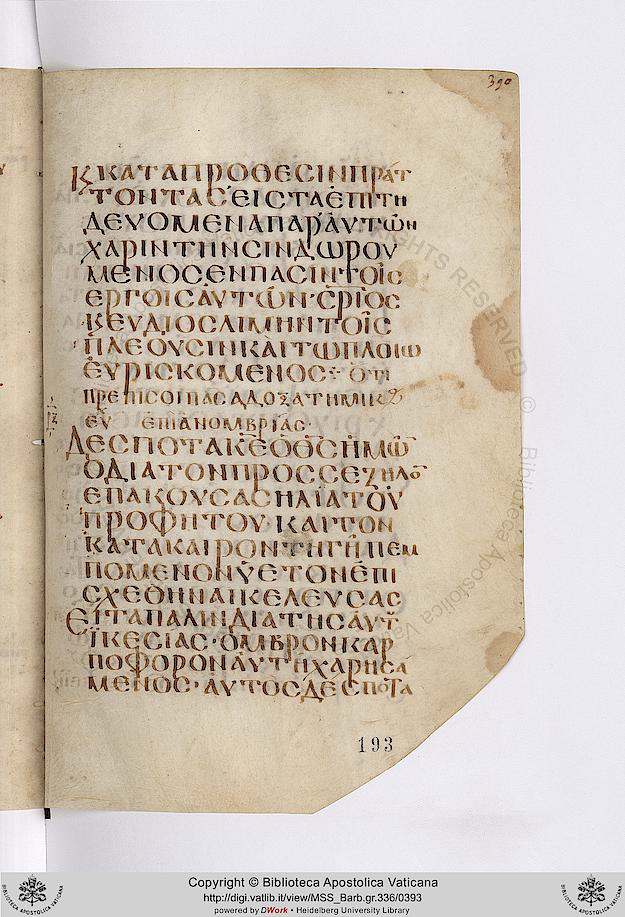 390
κ ΚΑΤΑΠΡΟΘΕСΙΝΠΡΑΤ
ΤΟΝΤΑС ΕΙСΤΑΕΠΙΤΗ
ΔΕΥΟΜΕΝΑΠΑΡ'ΑΥΤΩΝ
ΧΑΡΙΝΤΗΝСΙΝΔΩΡΟΥ
ΜΕΝΟС ΕΝΠΑСΙΝΤΟΙС
ΕΡΓΟΙСΑΥΤΩΝ·
ΚΕΥΔΙΟСΛΙΜΗΝΤΟΙС
ΠΛΕΟΥСΙΝΚΑΙΤΩΠΛΟΙΩ
ΕΥΡΙСΚΟΜΕΝΟС ΟΤΙ
ΠΡΕΠΙСΟΙΠΑСΑΔΟΞΑΤΙΜΙΚ
ΕΥ ΕΠΙΑΝΟΜΒΡΙΑС·
ΔΕСΠΟΤΑΚΕΟΘСΗΜΩ
ΟΔΙΑΤΟΝΠΡΟССΕΖΗΛΟ
ΕΠΑΚΟΥСΑСΗΛΙΑΤΟΥ
ΠΡΟΦΗΤΟΥ· ΚΑΙΤΟΝ
ΚΑΤΑΚΑΙΡΟΝΤΗΓΗΠΕΜ
ΠΟΜΕΝΟΝΫΕΤΟΝΕΠΙ
СΧΕΘΗΝΑΙΚΕΛΕΥСΑС
ΕΙΤΑΠΑΛΙΝΔΙΑΤΗСΑΥΤ
ΪΚΕСΙΑС·ΟΜΒΡΟΝΚΑΡ
ΠΟΦΟΡΟΝΑΥΤΗΧΑΡΗСΑ
ΜΕΝΟС·ΑΥΤΟСΔΕСΠΟΤΑ
193
Copyright © Biblioteca Apostolica Vaticana
http://digi.vatlib.it/view/MSS_Barb.gr.336/0393
powered by DWork • Heidelberg University Library